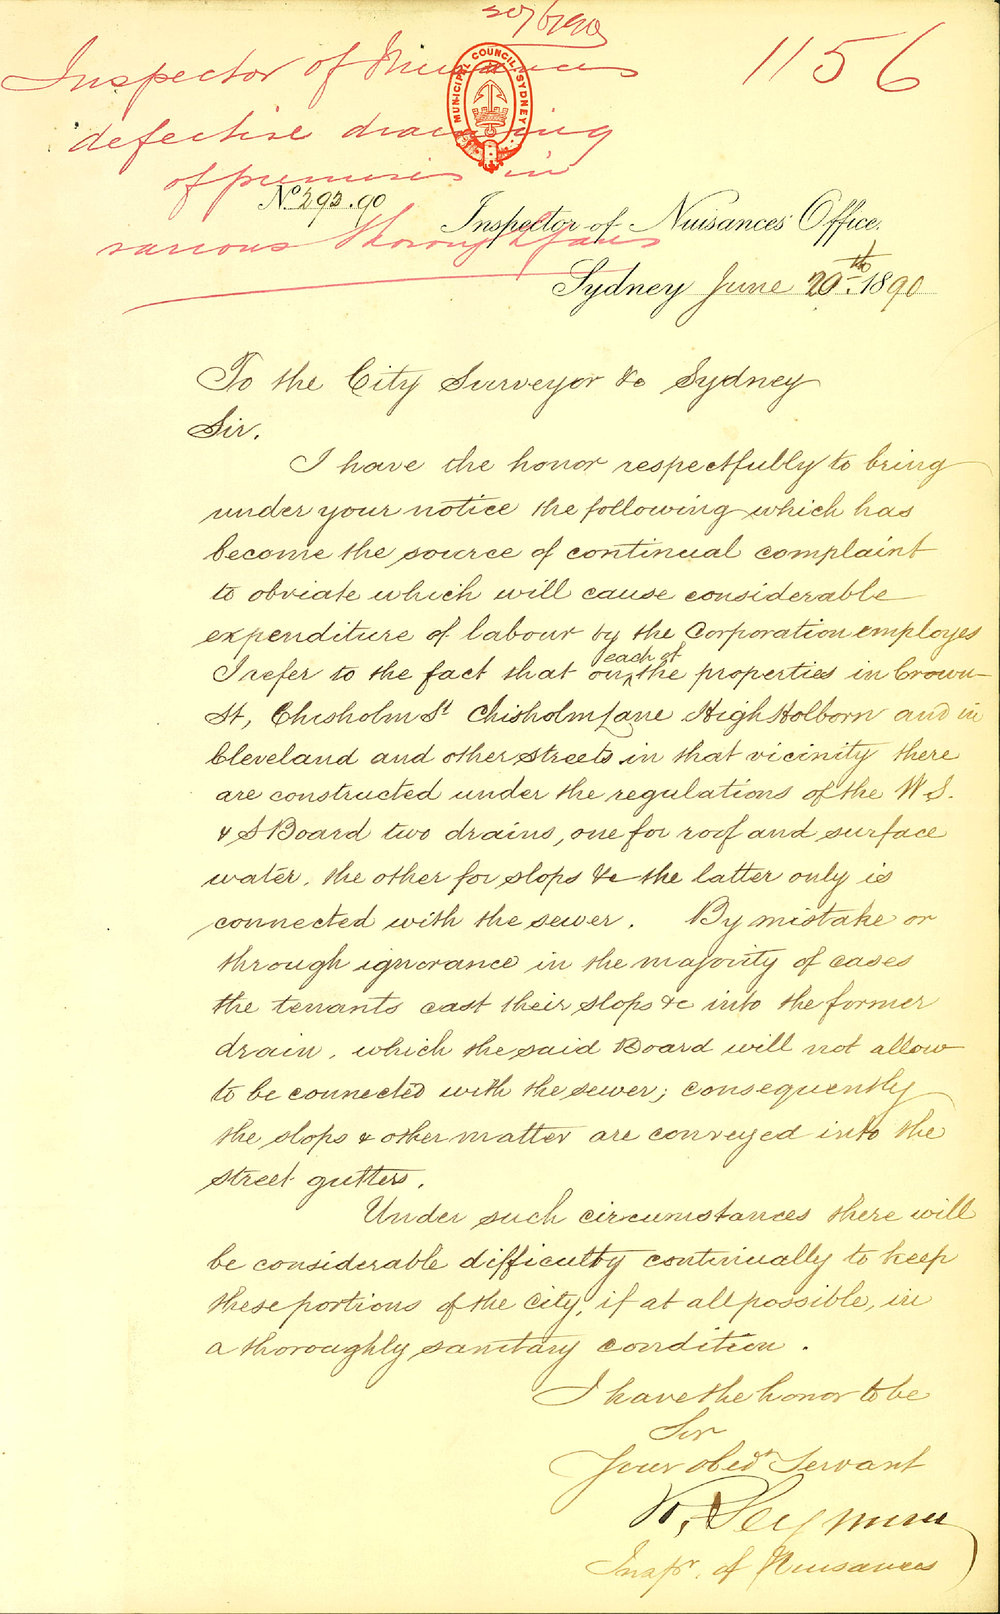 20/6/90
1156
Inspector of Nuisances
defective draining
of premises in
various thoroughfares
MUNICIPAL COUNCIL SYDNEY
No 292.90
Inspector of Nuisances' Office.
Sydney June 20th. 1890
To the City Surveyor &c Sydney
Sir.
I have the honor respectfully to bring
under your notice the following which has
become the source of continual complaint
to obviate which will cause considerable
expenditure of labour by the Corporation employes
each of
I refer to the fact that on ^ the properties in Crown
St, Chisholm St Chisholm Lane High Holborn and in
Cleveland and other streets in that vicinity there
are constructed under the regulations of the W. S.
& S Board two drains, one for roof and surface
water. the other for slops &c the latter only is
connected with the sewer. By mistake or
through ignorance in the majority of cases
the tenants cast their slops &c into the former
drain. which the said Board will not allow
to be connected with the sewer; consequently
the slops & other matter are conveyed into the
street gutters.
Under such circumstances there will
be considerable difficulty continually to keep
these portions of the City, if at all possible, in
a thoroughly sanitary condition.
I have the honor to be
Sir
Your obedt Servant
R. Seymour
Inspr. of Nuisances